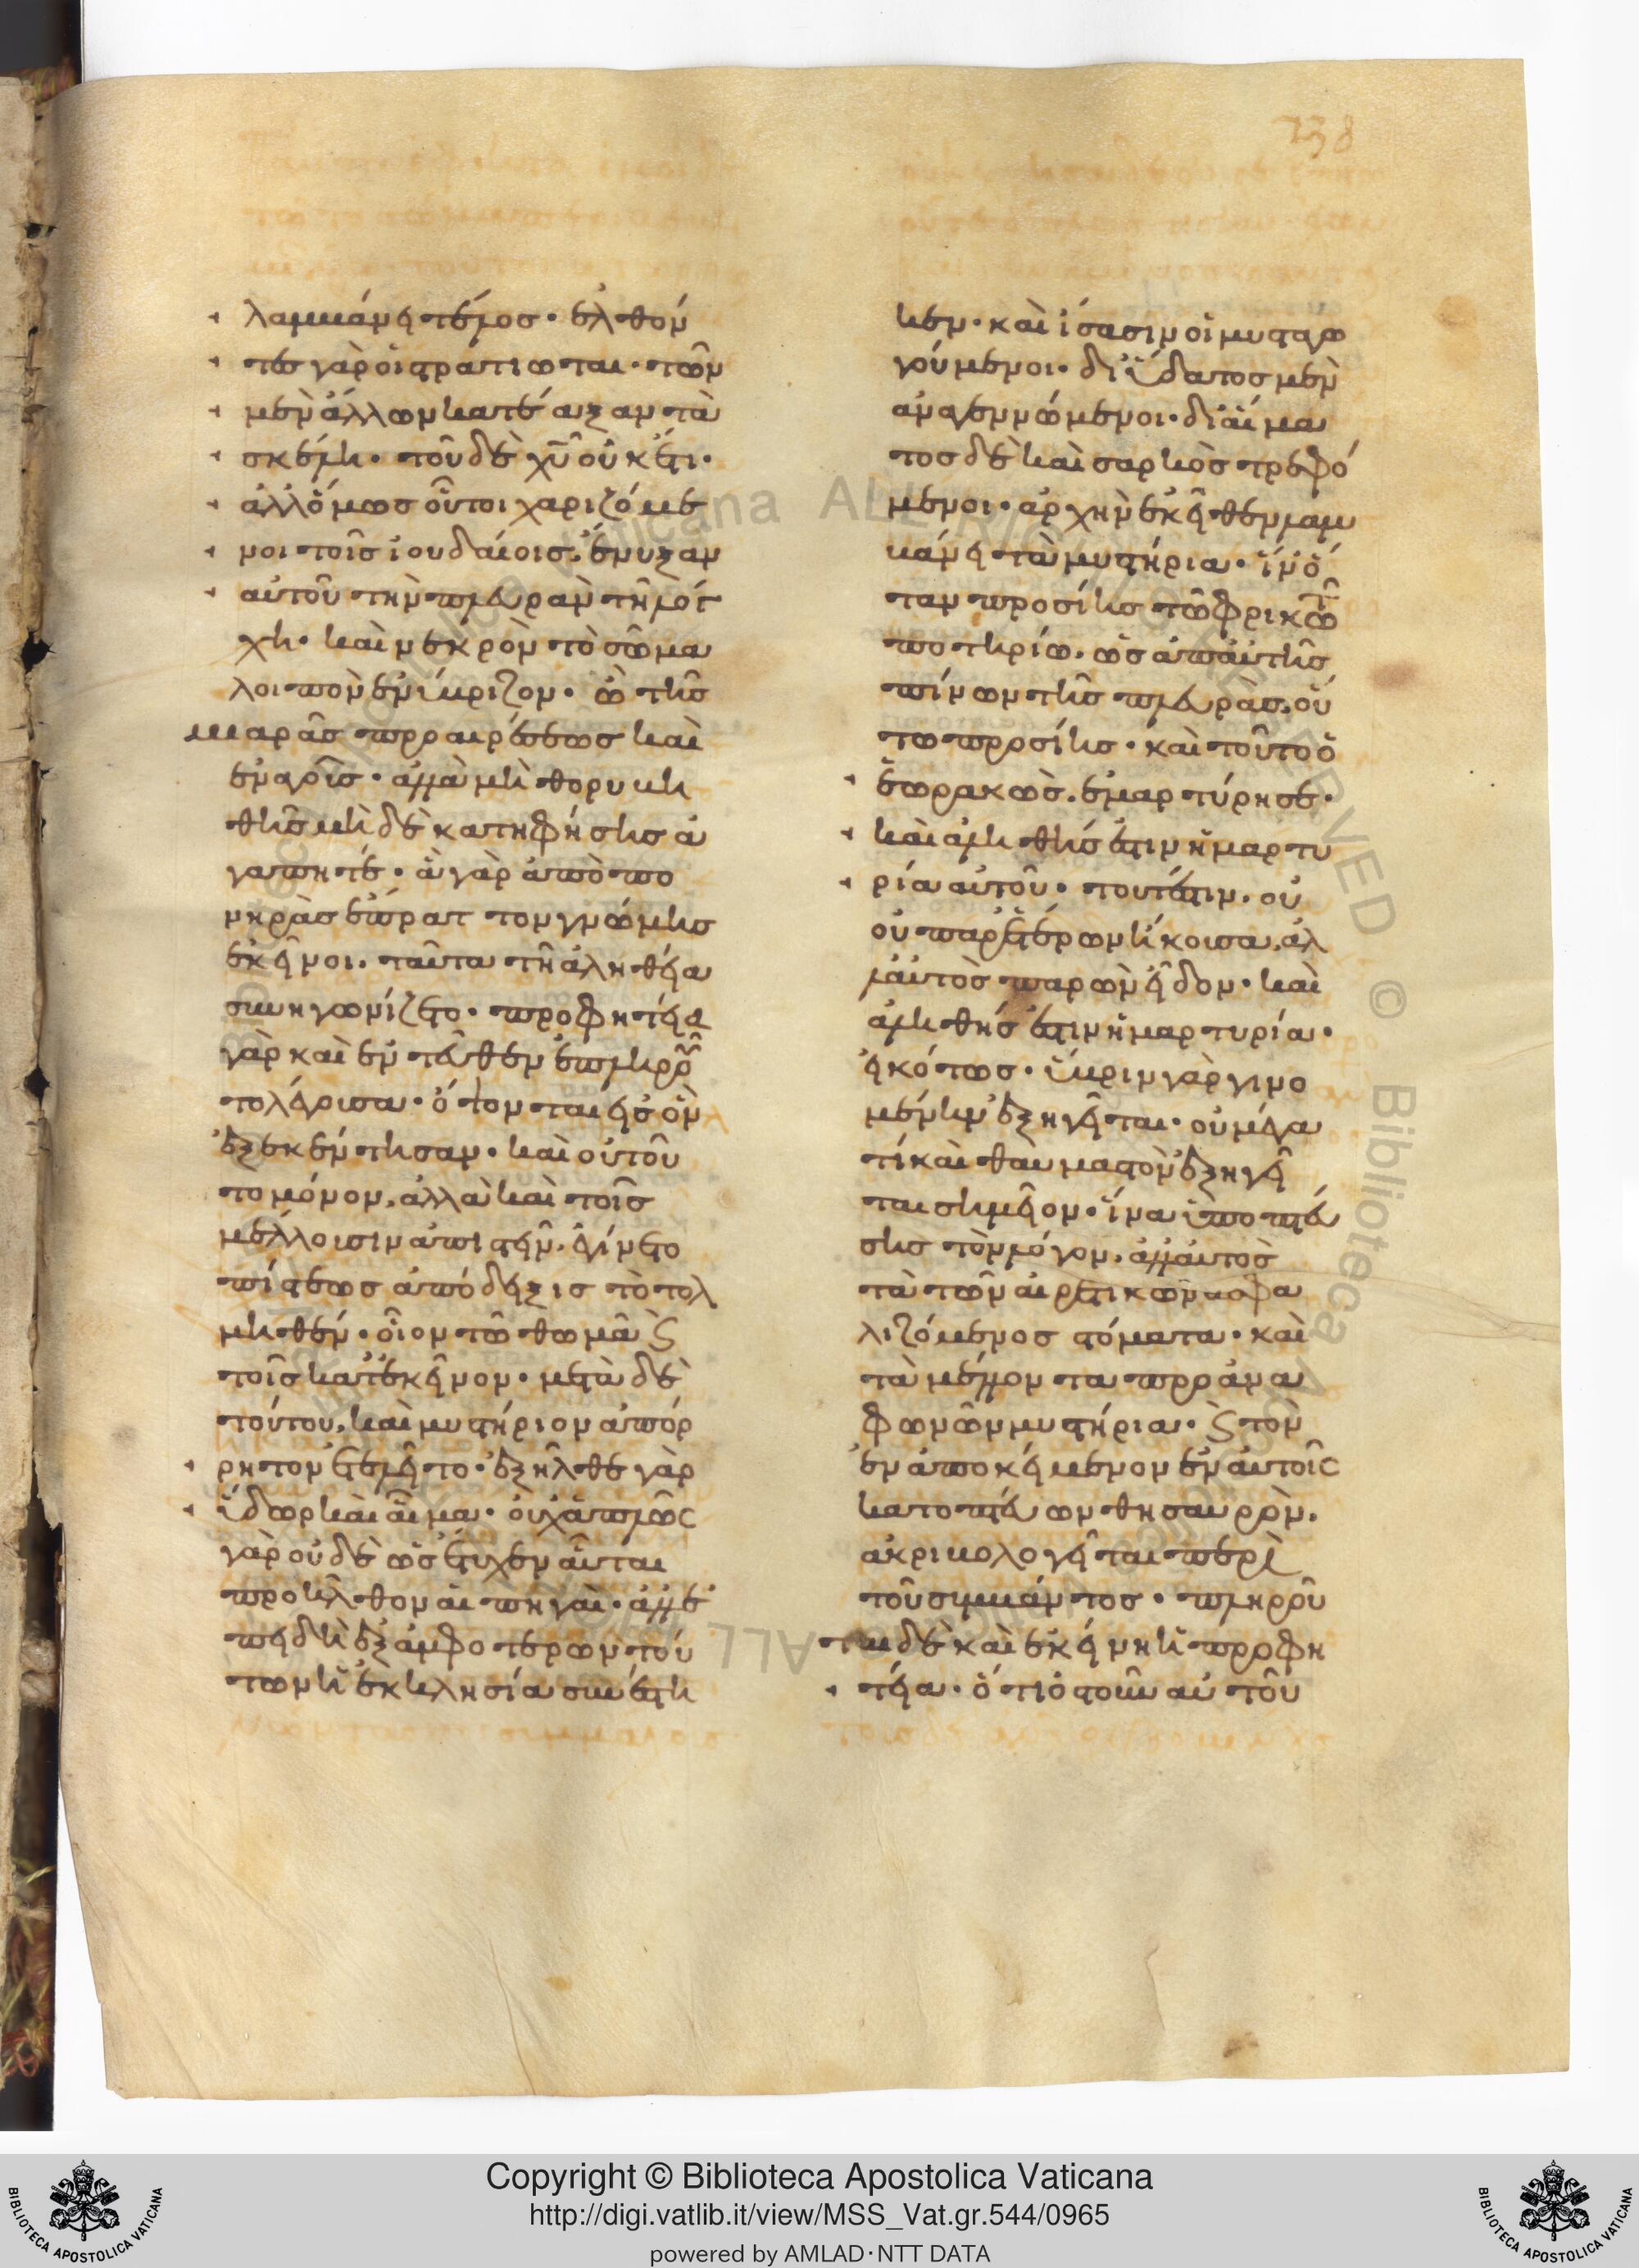 738
λαμβάνει τέλος· ἐλθόν
τες γὰρ οἱ στρατιῶται· τῶν
μὲν ἄλλων κατέαξαν τὰ
σκέλη· τοῦ δὲ χῡ οὐκ ἔτι·
ἀλλ' ὅμως οὗτοι χαριζόμε
νοι τοῖς ἰουδαίοις, ἔνυξαν
αὐτοῦ τὴν πλευρὰν τῆ λόγ
χη· καὶ νεκρὸν τὸ σῶμα
λοιπὸν ἐνύβριζον· ὢ τῆς
μιαρᾶς προαιρέσεως καὶ
ἐναγοῦς· ἀλλὰ μὴ θορυβη
θῆς μὴ δὲ κατηφήσης ἀ
γαπητέ· ἃ γὰρ ἀπὸ πο
νηρᾶς ἔπραττον γνώμης
ἐκεῖνοι. ταῦτα τῆ ἀληθεία
συνηγωνίζετο· προφητεία
γὰρ καὶ ἐντεῦθεν ἐπληροῦ
το λέγουσα· ὄψονται εἰς ὃν
ἐξεκέντησαν· καὶ οὐ τοῦ
το μόνον, ἀλλὰ καὶ τοῖς
μέλλουσιν ἀπιστεῖν, ἐγίνετο
πίστεως ἀπόδειξις τὸ τολ
μηθέν· οἷον τῶ θωμᾶ ϛ
τοῖς κατ' ἐκεῖνον· μετὰ δὲ
τούτου, καὶ μυστήριον ἀπόρ
ρητον ἐτελεῖτο· ἐξῆλθε γὰρ
ὕδωρ καὶ αἷμα· οὐχ ἁπλῶς
γὰρ οὐδὲ ὡς ἔτυχεν αὗται
προῆλθον αἱ πηγαί· ἀλλ' ἐ
πειδὴ ἐξ ἀμφοτέρων τού
των ἡ ἐκκλησία συνέστη
κεν· καὶ ἴσασιν οἱ μυσταγω
γούμενοι· δι' ὕδατος μὲν
ἀναγεννώμενοι· δι' αἵμα
τος δὲ καὶ σαρκὸς τρεφό
μενοι· ἀρχὴν ἐκεῖθεν λαμ
βάνει τὰ μυστήρια· ἵν' ὅ
ταν προσίης τῶ φρικτῶ
ποτηρίω. ὡς ἀπ' αὐτῆς
πίνων τῆς πλευρᾶς, οὕ
τω προσίης· καὶ τοῦτο ὁ
ἑωρακὼς. ἐμαρτύρησε·
καὶ ἀληθής ἐστιν ἡ μαρτυ
ρία αὐτοῦ· τουτέστιν. οὐ
οὐ παρ' ἑτέρων ἤκουσα, ἀλ
λ' αὐτὸς παρὼν εἶδον· καὶ
ἀληθής ἐστιν ἡ μαρτυρία·
εἰκότως· ὕβριν γὰρ γινο
μένην ἐξηγεῖται· οὐ μέγα
τί καὶ θαυμαστὸν ἐξηγεῖ
ται σημεῖον· ἵνα ὑποπτεύ
σης τὸν λόγον, ἀλλ' αὐτὸς
τὰ τῶν αἱρετικῶν ἀσφα
λιζόμενος στόματα· καὶ
τὰ μέλλοντα προἀνα
φωνῶν μυστήρια· ϛ τὸν
ἐναποκείμενον ἐν αὐτοῖς
κατοπτεύων θησαυρὸν,
ἀκριβολογεῖται περὶ
τοῦ συμβάντος· πληροῦ
ται δὲ καὶ ἐκείνη ἡ προφη
τεία· ὀστοῦν αὐτοῦ
Copyright © Biblioteca Apostolica Vaticana
http://digi.vatlib.it/view/MSS_Vat.gr.544/0965
powered by AMLAD·NTT DATA